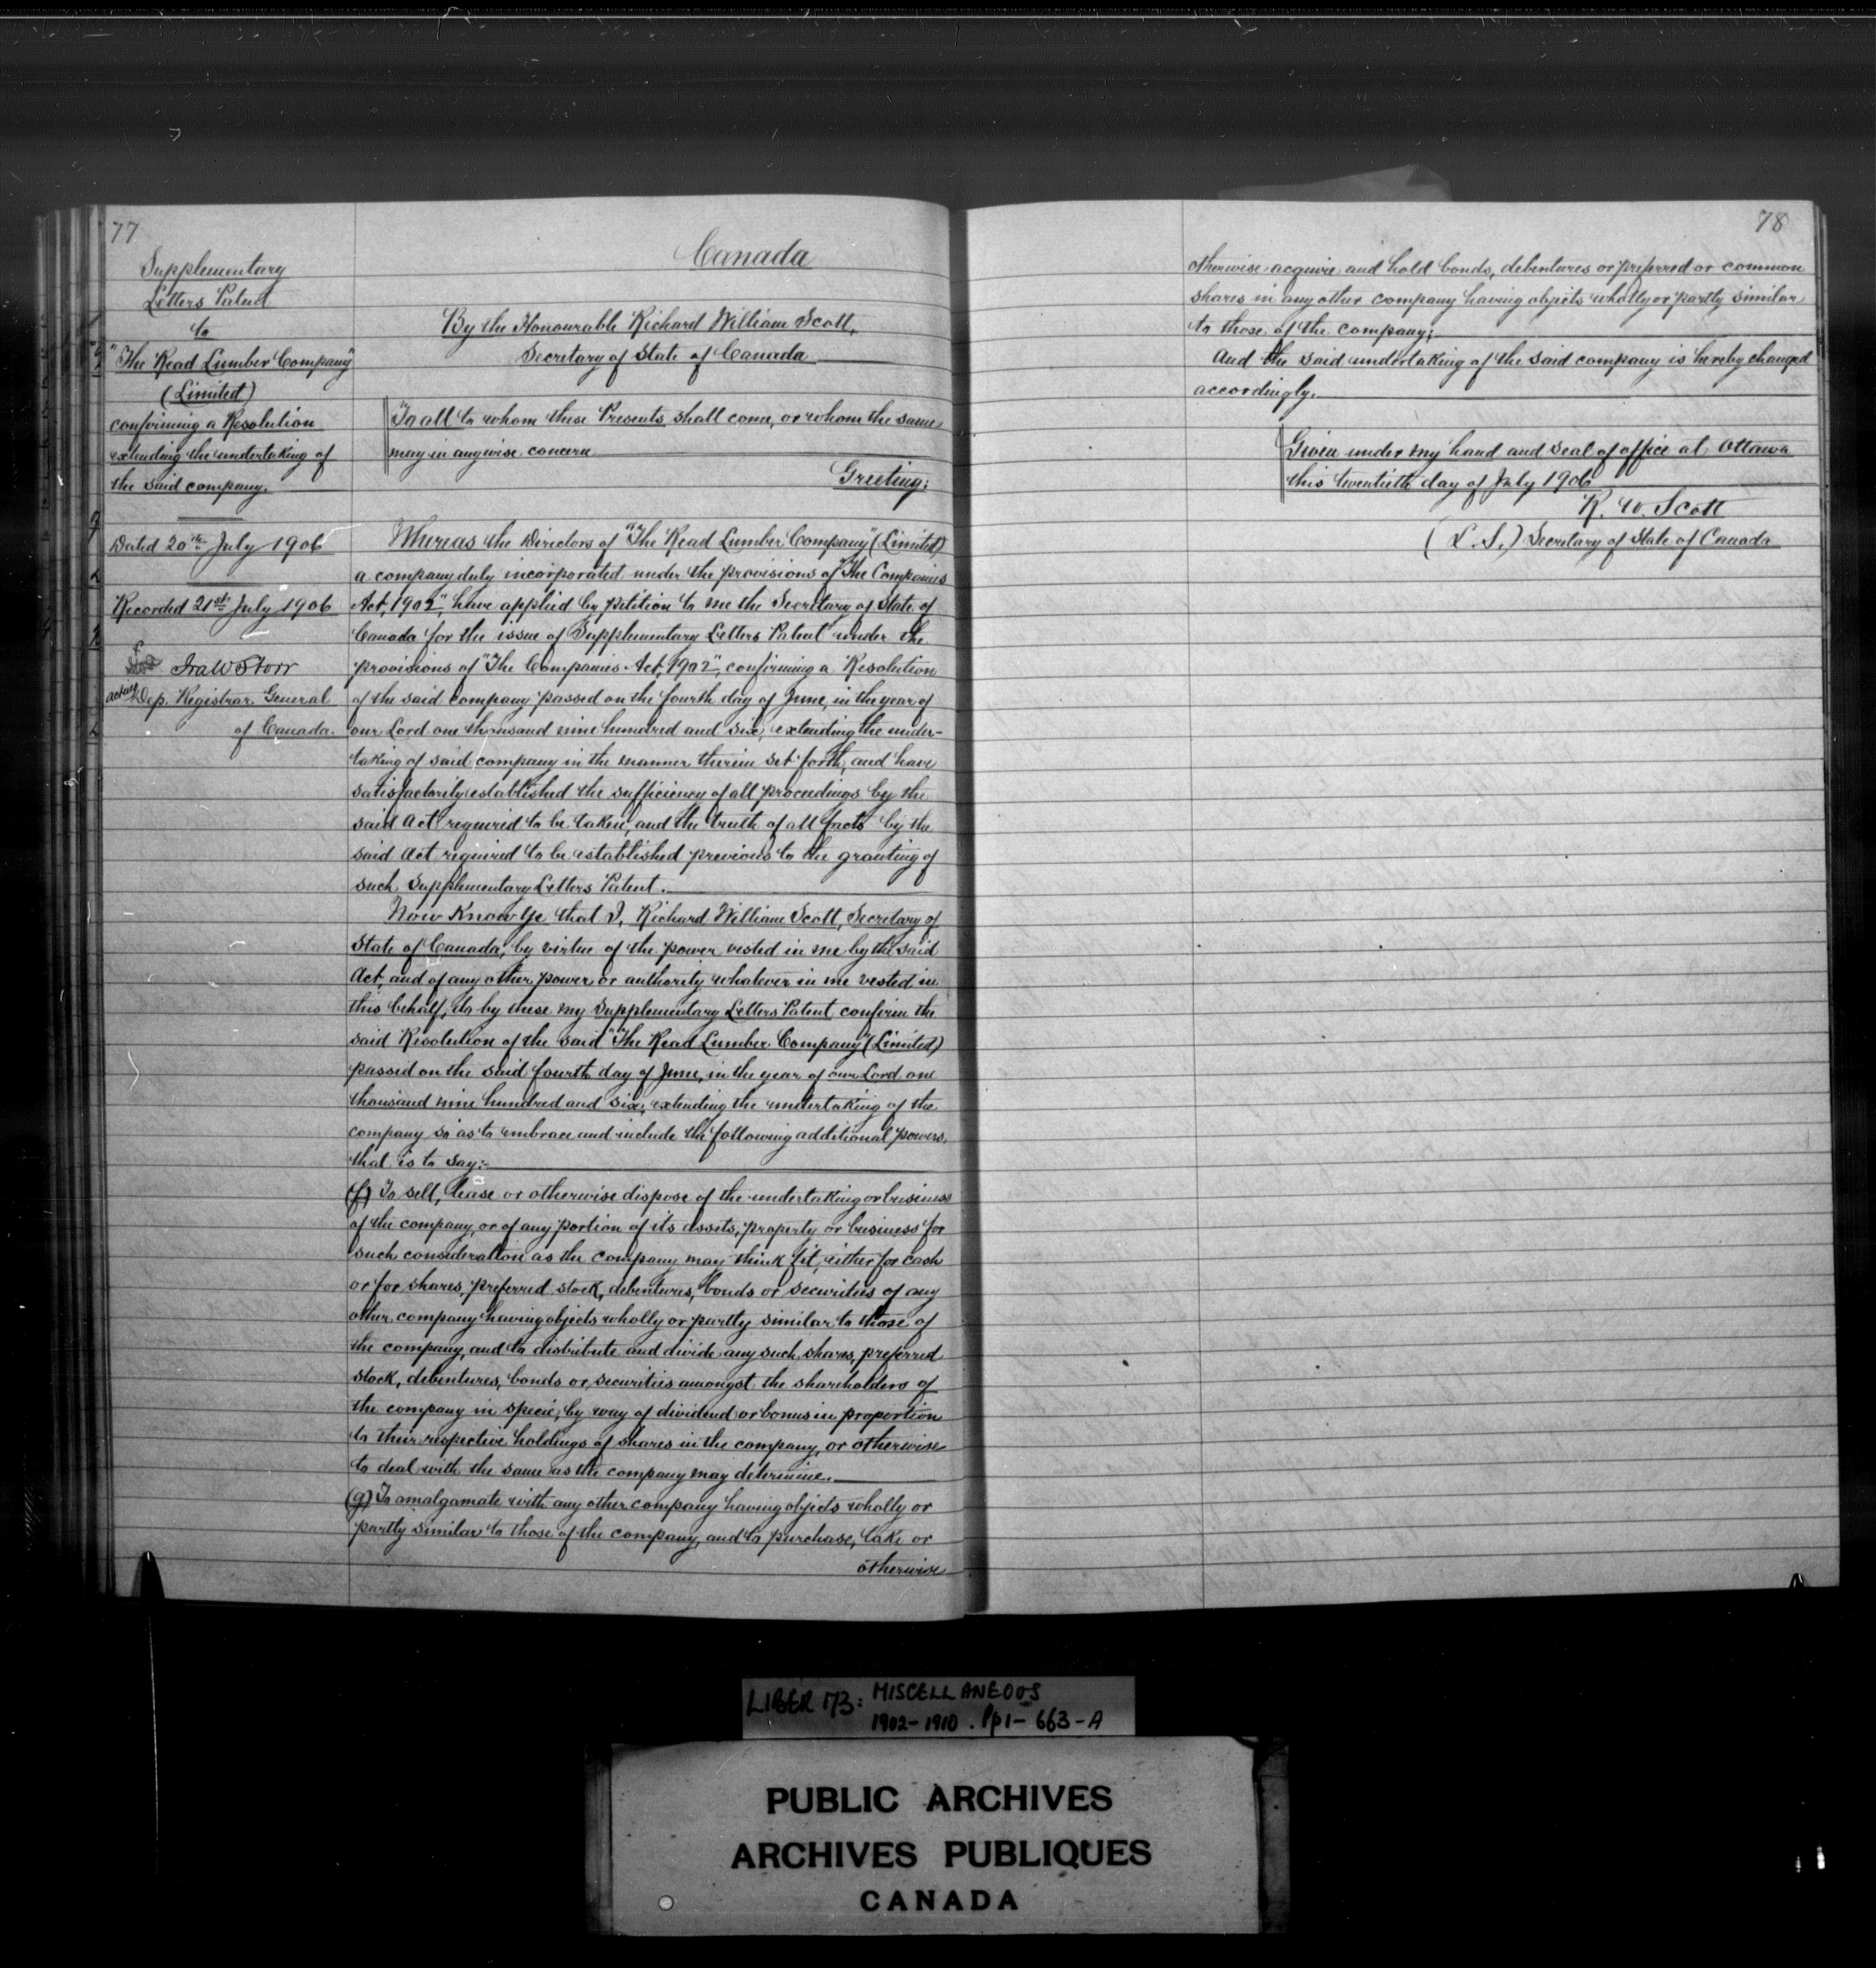 77
Supplementary
Letters Patent
to
"The Read Lumber Company"
(Limited)
confirming a Resolution
extending the undertaking of
the said company.
Dated 20th July 1906
Recorded 21st July 1906
Ira W Storr
acting Dep. Registrar General
of Canada.
Canada
By the Honourable Richard William Scott,
Secretary of State of Canada
To all to whom these Presents shall come, or whom the same
may in anywise concern
Greeting:
Whereas the Directors of "The Read Lumber Company" (Limited)
a company duly incorporated under the provisions of "The Companies
Act, 1902", have applied by petition to me the Secretary of State of
Canada for the issue of Supplementary Letters Patent under the
provisions of "The Companies Act, 1902", confirming a Resolution
of the said company passed on the fourth day of June, in the year of
our Lord one thousand nine hundred and six, extending the under-
taking of said company in the manner therein set forth, and have
satisfactorily established the sufficiency of all proceedings by the
said Act required to be taken, and the truth of all facts by the
said Act required to be established previous to the granting of
such Supplementary Letters Patent.
Now Know Ye that I, Richard William Scott, Secretary of
State of Canada, by virtue of the power vested in me by the said
Act, and of any other power or authority whatever in me vested in
this behalf, do by these my Supplementary Letters Patent confirm the
said Resolution of the said "The Read Lumber Company" (Limited)
passed on the said fourth day of June, in the year of our Lord one
thousand nine hundred and six, extending the undertaking of the
company so as to embrace and include the following additional powers,
that is to say:-
(f) To sell, lease or otherwise dispose of the undertaking or business
of the company, or of any portion of its assets, property or business for
such consideration as the company may think fit, either for cash
or for shares, preferred stock, debentures, bonds or securities of any
other company having objects wholly or partly similar to those of
the company, and to distribute and divide any such shares, preferred
stock, debentures, bonds or securities amongst the shareholders of
the company in specie, by way of dividend or bonus in proportion
to their respective holdings of shares in the company, or otherwise
to deal with the same as the company may determine.
(g) To amalgamate with any other company having objects wholly or
partly similar to those of the company, and to purchase, take or
otherwise
78
otherwise acquire and hold bonds, debentures or preferred or common
shares in any other company having objects wholly or partly similar
to those of the company;
And the said undertaking of the said company is hereby changed
accordingly.
Given under my hand and seal of office at Ottawa
this twentieth day of July 1906
R. W. Scott
(L.S.) Secretary of State of Canada
LIBER 173: MISCELLANEOUS
1902-1910. Pp 1-663-A
PUBLIC ARCHIVES
ARCHIVES PUBLIQUES
CANADA